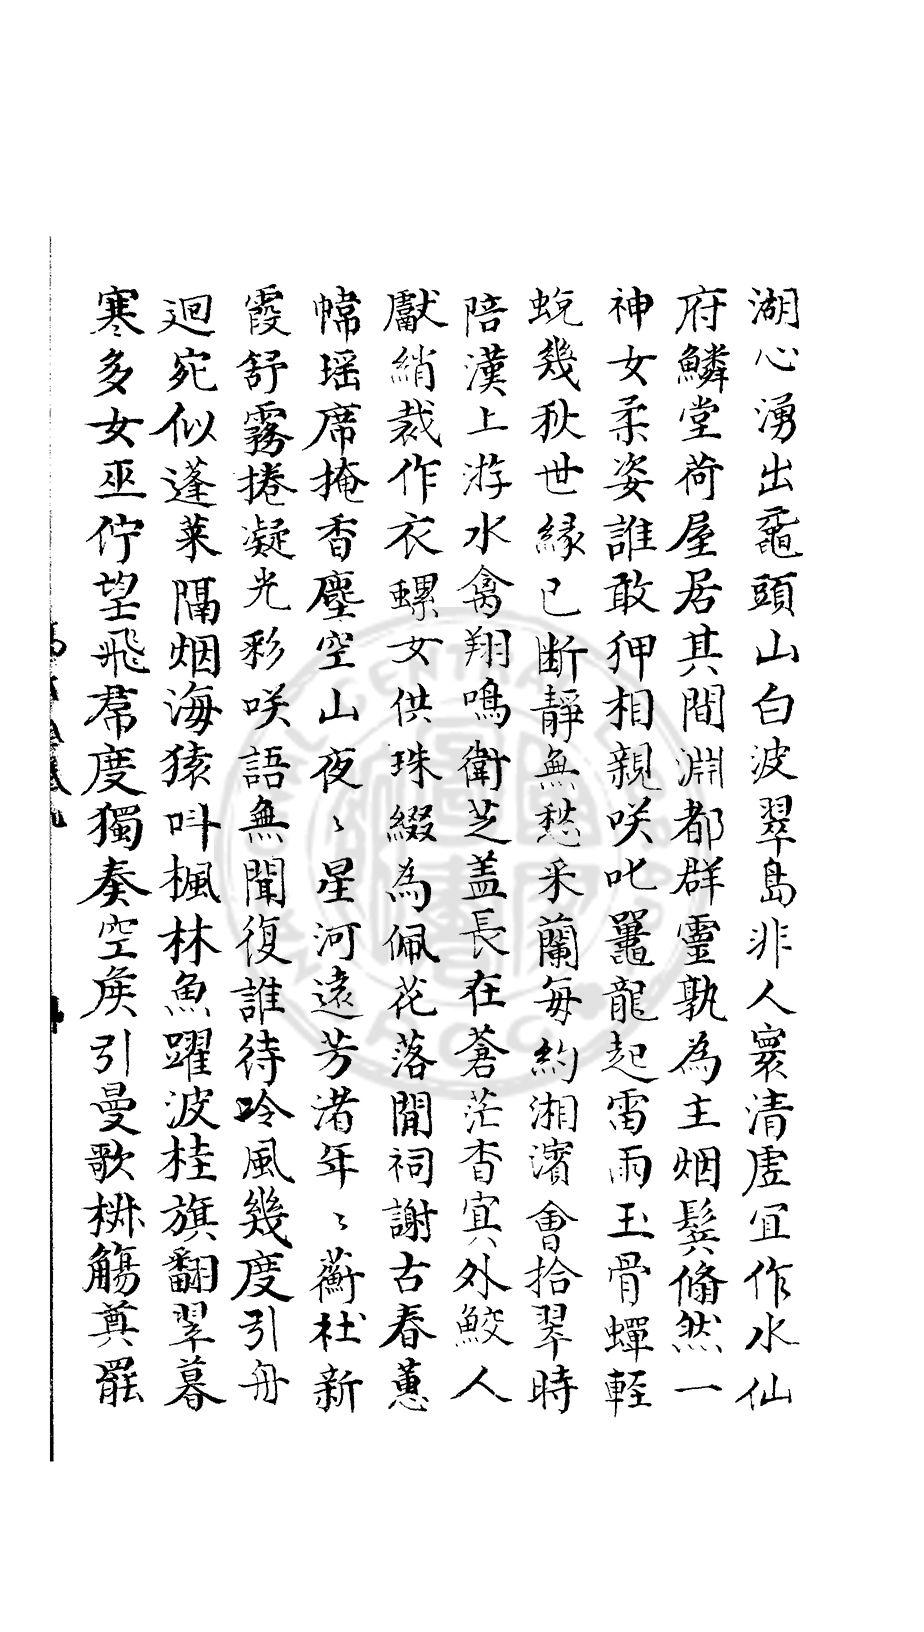 湖心湧出黿頭山白波翠島非人寰清虛宜作水仙
府鱗堂荷屋居其間淵都群靈孰為主烟鬂翛然一
神女柔姿誰敢狎相親咲叱鼉龍起雷雨玉骨蟬輕
蛻幾秋世緣已断靜無愁采蘭每約湘濱會拾翠時
陪漢上游水禽翔鳴衛芝盖長在蒼茫杳㝠外鮫人
獻綃裁作衣螺女供珠綴為佩花落閒祠謝古春蕙
幃瑶席掩香塵空山夜〻星河遠芳渚年〻蘅杜新
霞舒霧捲凝光彩咲語無聞復誰待吟風幾度引舟
迴宛似蓬莱隔烟海猿叫楓林魚躍波桂旗翻翠暮
寒多女巫佇望飛帬度獨奏空侯引曼歌椒觴奠罷